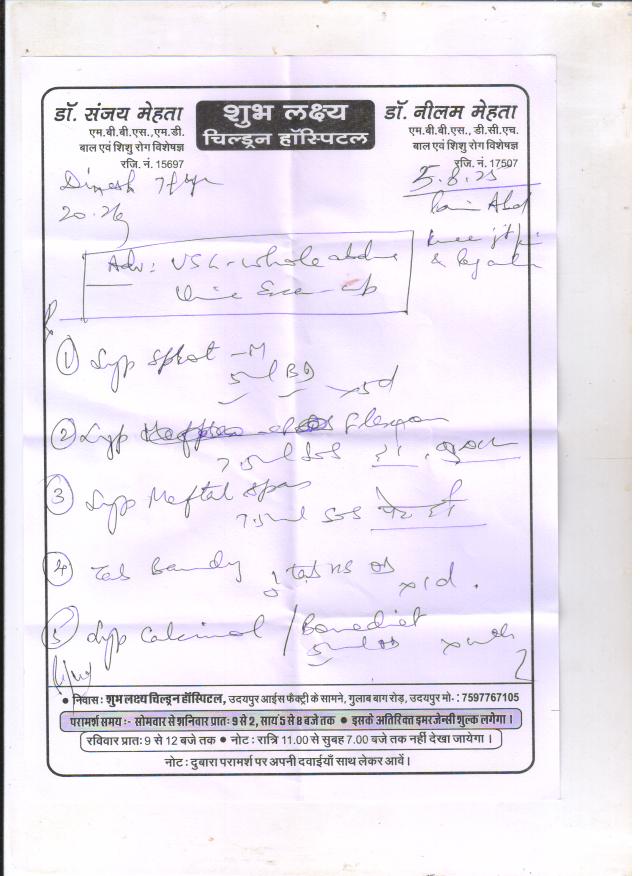 डॉ. संजय मेहता
एम.बी.बी.एस., एम.डी.
बाल एवं शिशु रोग विशेषज्ञ
रजि. नं. 15697
शुभ लक्ष्य
चिल्ड्रन हॉस्पिटल
डॉ. नीलम मेहता
एम.बी.बी.एस., डी.सी.एच.
बाल एवं शिशु रोग विशेषज्ञ
रजि. नं. 17507
Dinesh
5.8.25
Pain Abd
Knee jt
&
Adv: USG - whole abdo
Urine Exam
① Syp - M
5ml BD x5d
② Syp Flexon
7.5ml SOS
③ Syp Meftal Spas
7.5ml SOS पेट दर्द
④ Tab Bandy
1 tab HS x1d.
⑤ Syp Calcimol /
5ml
● निवासः शुभ लक्ष्य चिल्ड्रन हॉस्पिटल, उदयपुर आईस फैक्ट्री के सामने, गुलाब बाग रोड़, उदयपुर मो.: 7597767105
परामर्श समय :- सोमवार से शनिवार प्रातः 9 से 2, सायं 5 से 8 बजे तक ● इसके अतिरिक्त इमरजेन्सी शुल्क लगेगा।
रविवार प्रातः 9 से 12 बजे तक ● नोट : रात्रि 11.00 से सुबह 7.00 बजे तक नहीं देखा जायेगा।
नोट : दुबारा परामर्श पर अपनी दवाईयाँ साथ लेकर आवें।